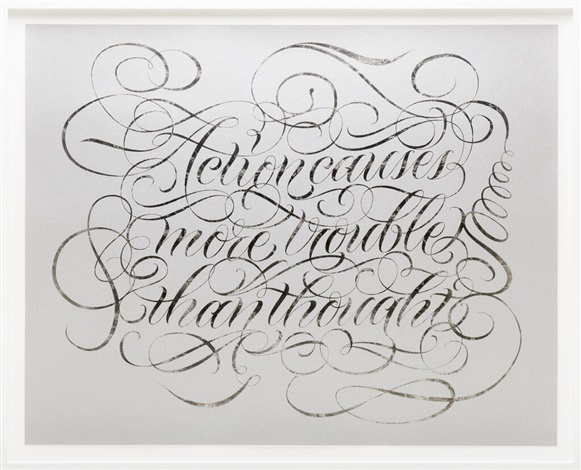 Action causes
more trouble
than thought